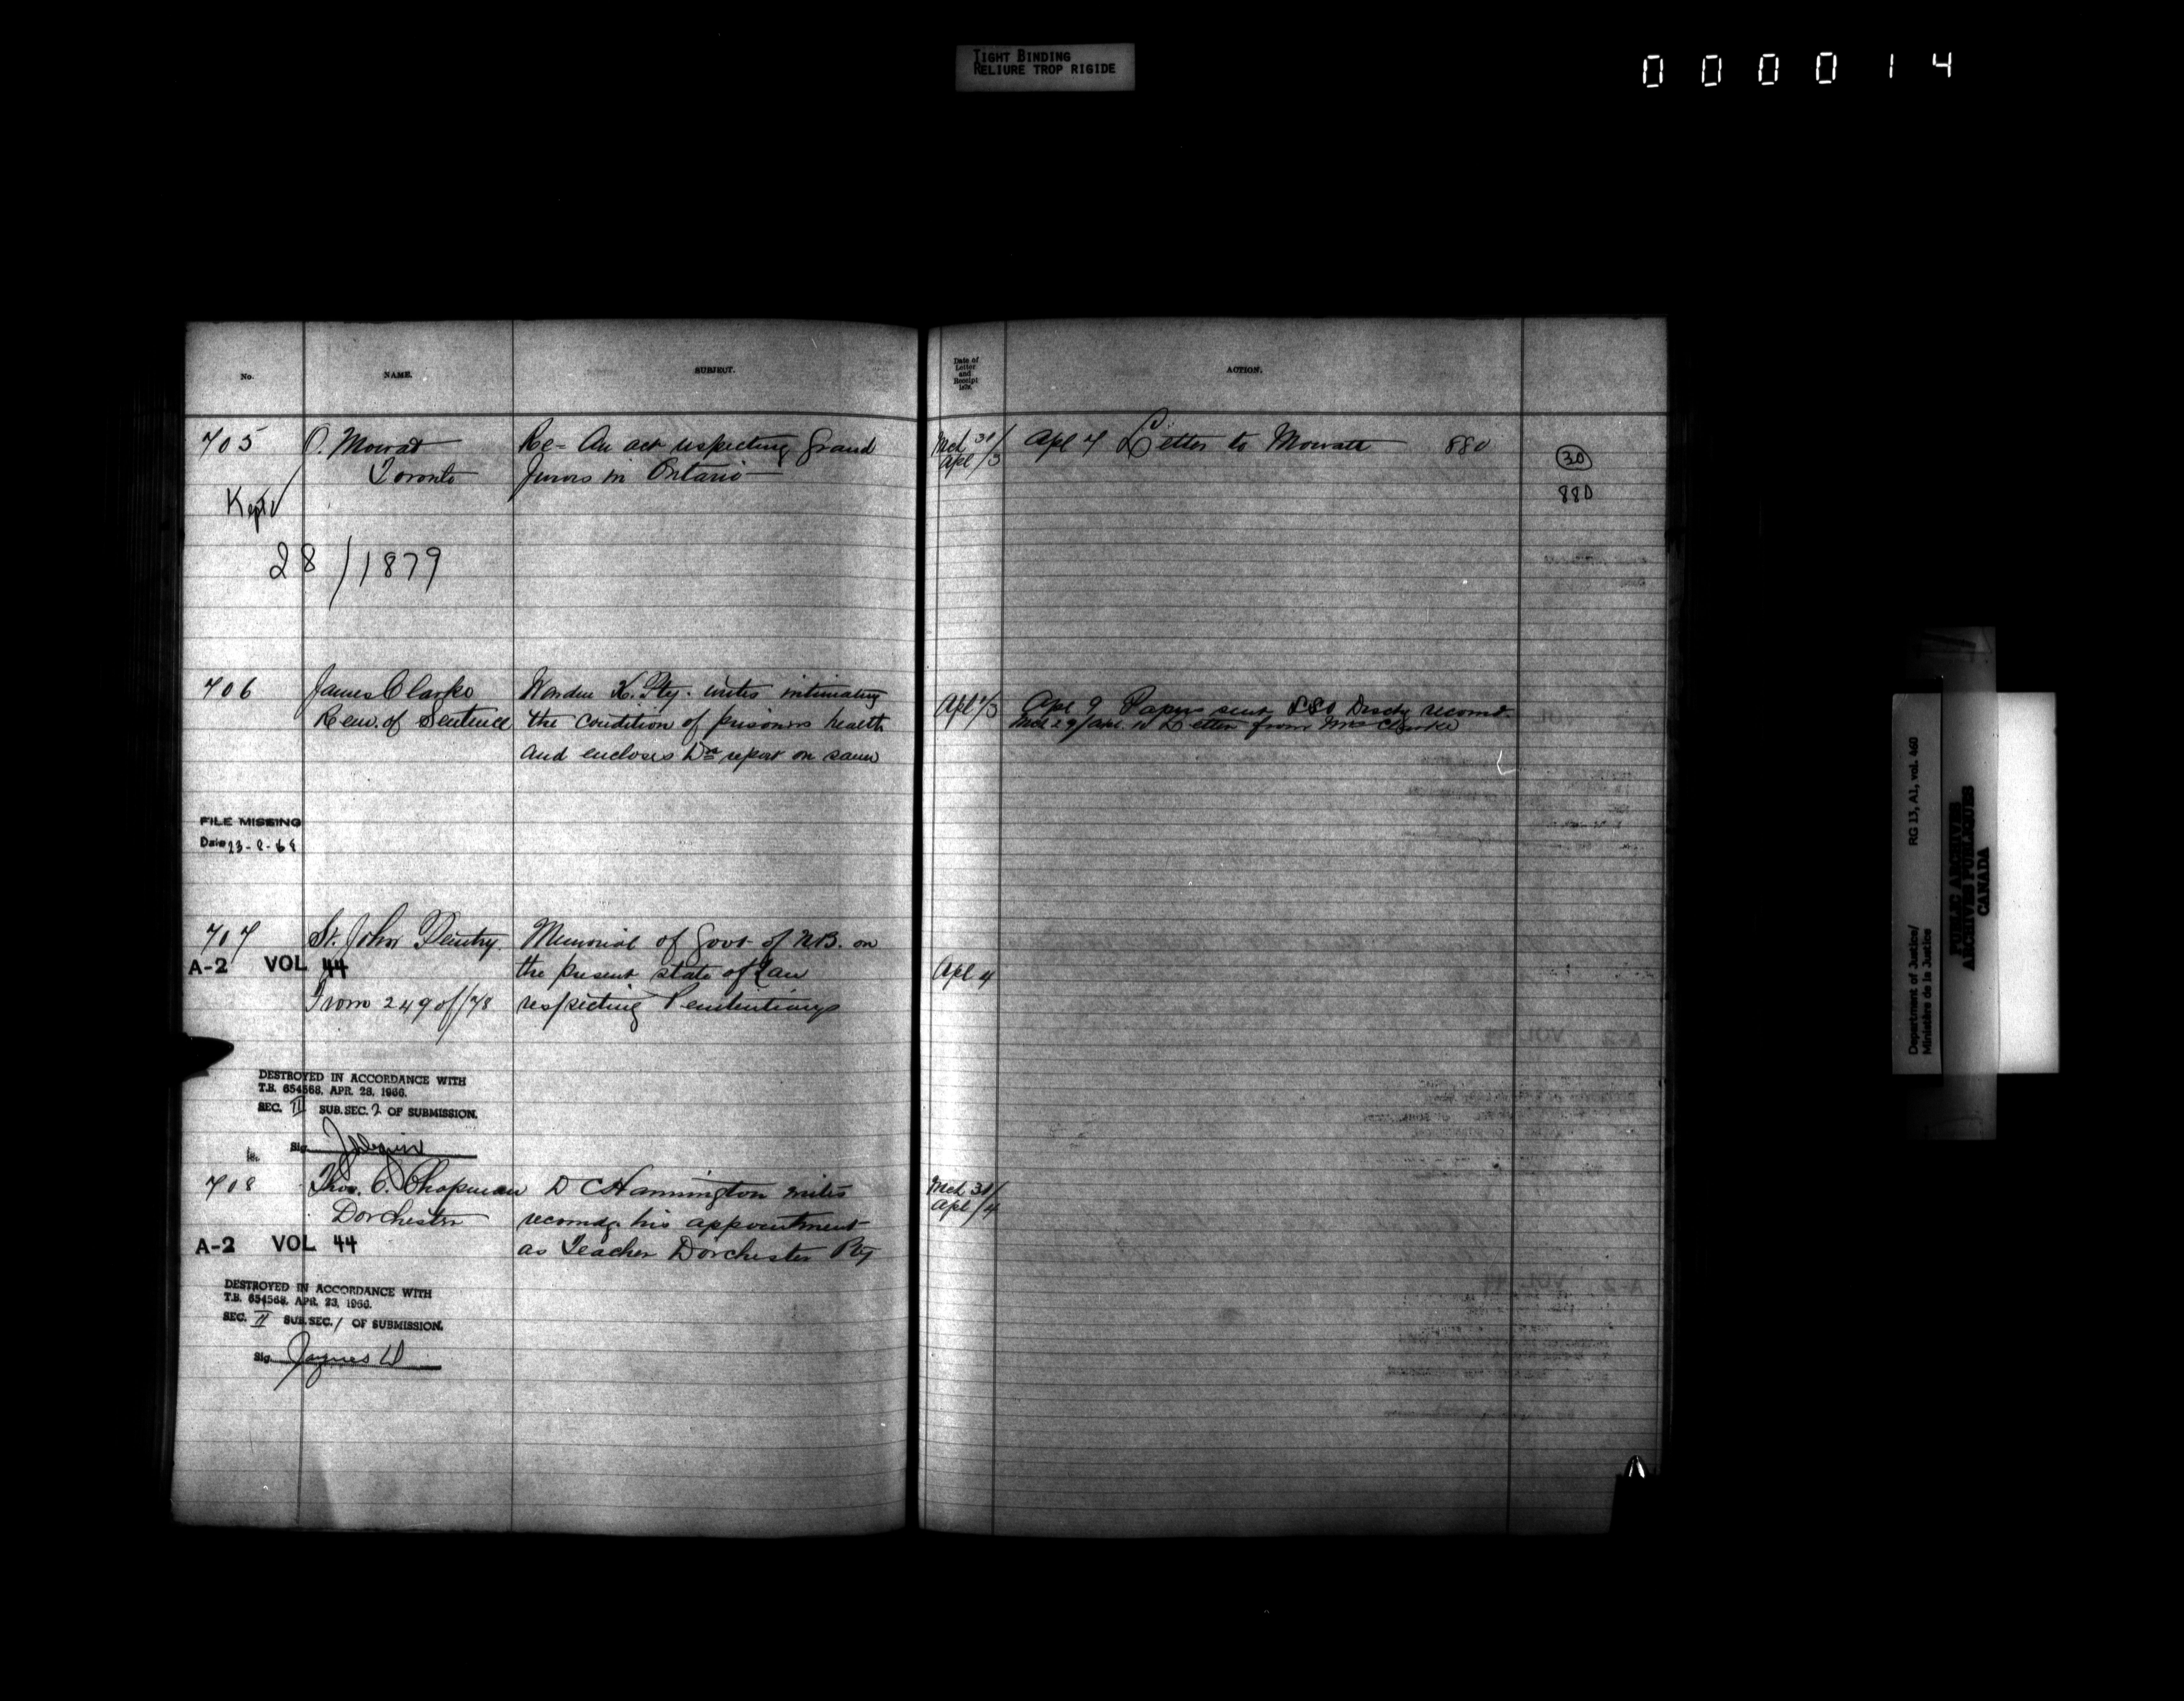 TIGHT BINDING
RELIURE TROP RIGIDE
000014
No. NAME. SUBJECT.
Date of Letter and Receipt 1879. ACTION.
705 O. Mowat Re- An act respecting Grand
Toronto Jurors in Ontario
Kept
28/1879
Mch 31/ Apl 7 Letter to Mowatt 880
Apl /3
30
880
706 James Clarke Warden K. Pty. writes intimating
Rem. of Sentence the condition of prisoners health
and encloses Drs report on same
Apl 2/3 Apl 9 Papers sent SSO Disch recomd.
Mch 29/Apl 10 Letter from Mrs Clarke
FILE MISSING
Date 23-8-68
707 St. John Pentry. Memorial of Govt of N.B. on
A-2 VOL 44 the present state of Law
From 249 of/78 respecting Penitentiarys
Apl 4
DESTROYED IN ACCORDANCE WITH
T.B. 654568, APR. 28, 1966.
SEC. II SUB.SEC. 2 OF SUBMISSION.
Sig.
708 Thos. C. Chapman D C Hannington writes
Dorchester recomdg his appointment
A-2 VOL 44 as Teacher Dorchester Pty
Mch 31/
Apl /4
DESTROYED IN ACCORDANCE WITH
T.B. 654568, APR. 23, 1966.
SEC. II SUB.SEC. 1 OF SUBMISSION.
Sig.
Department of Justice/ RG 13, A1, vol. 460
Ministère de la Justice
PUBLIC ARCHIVES
ARCHIVES PUBLIQUES
CANADA